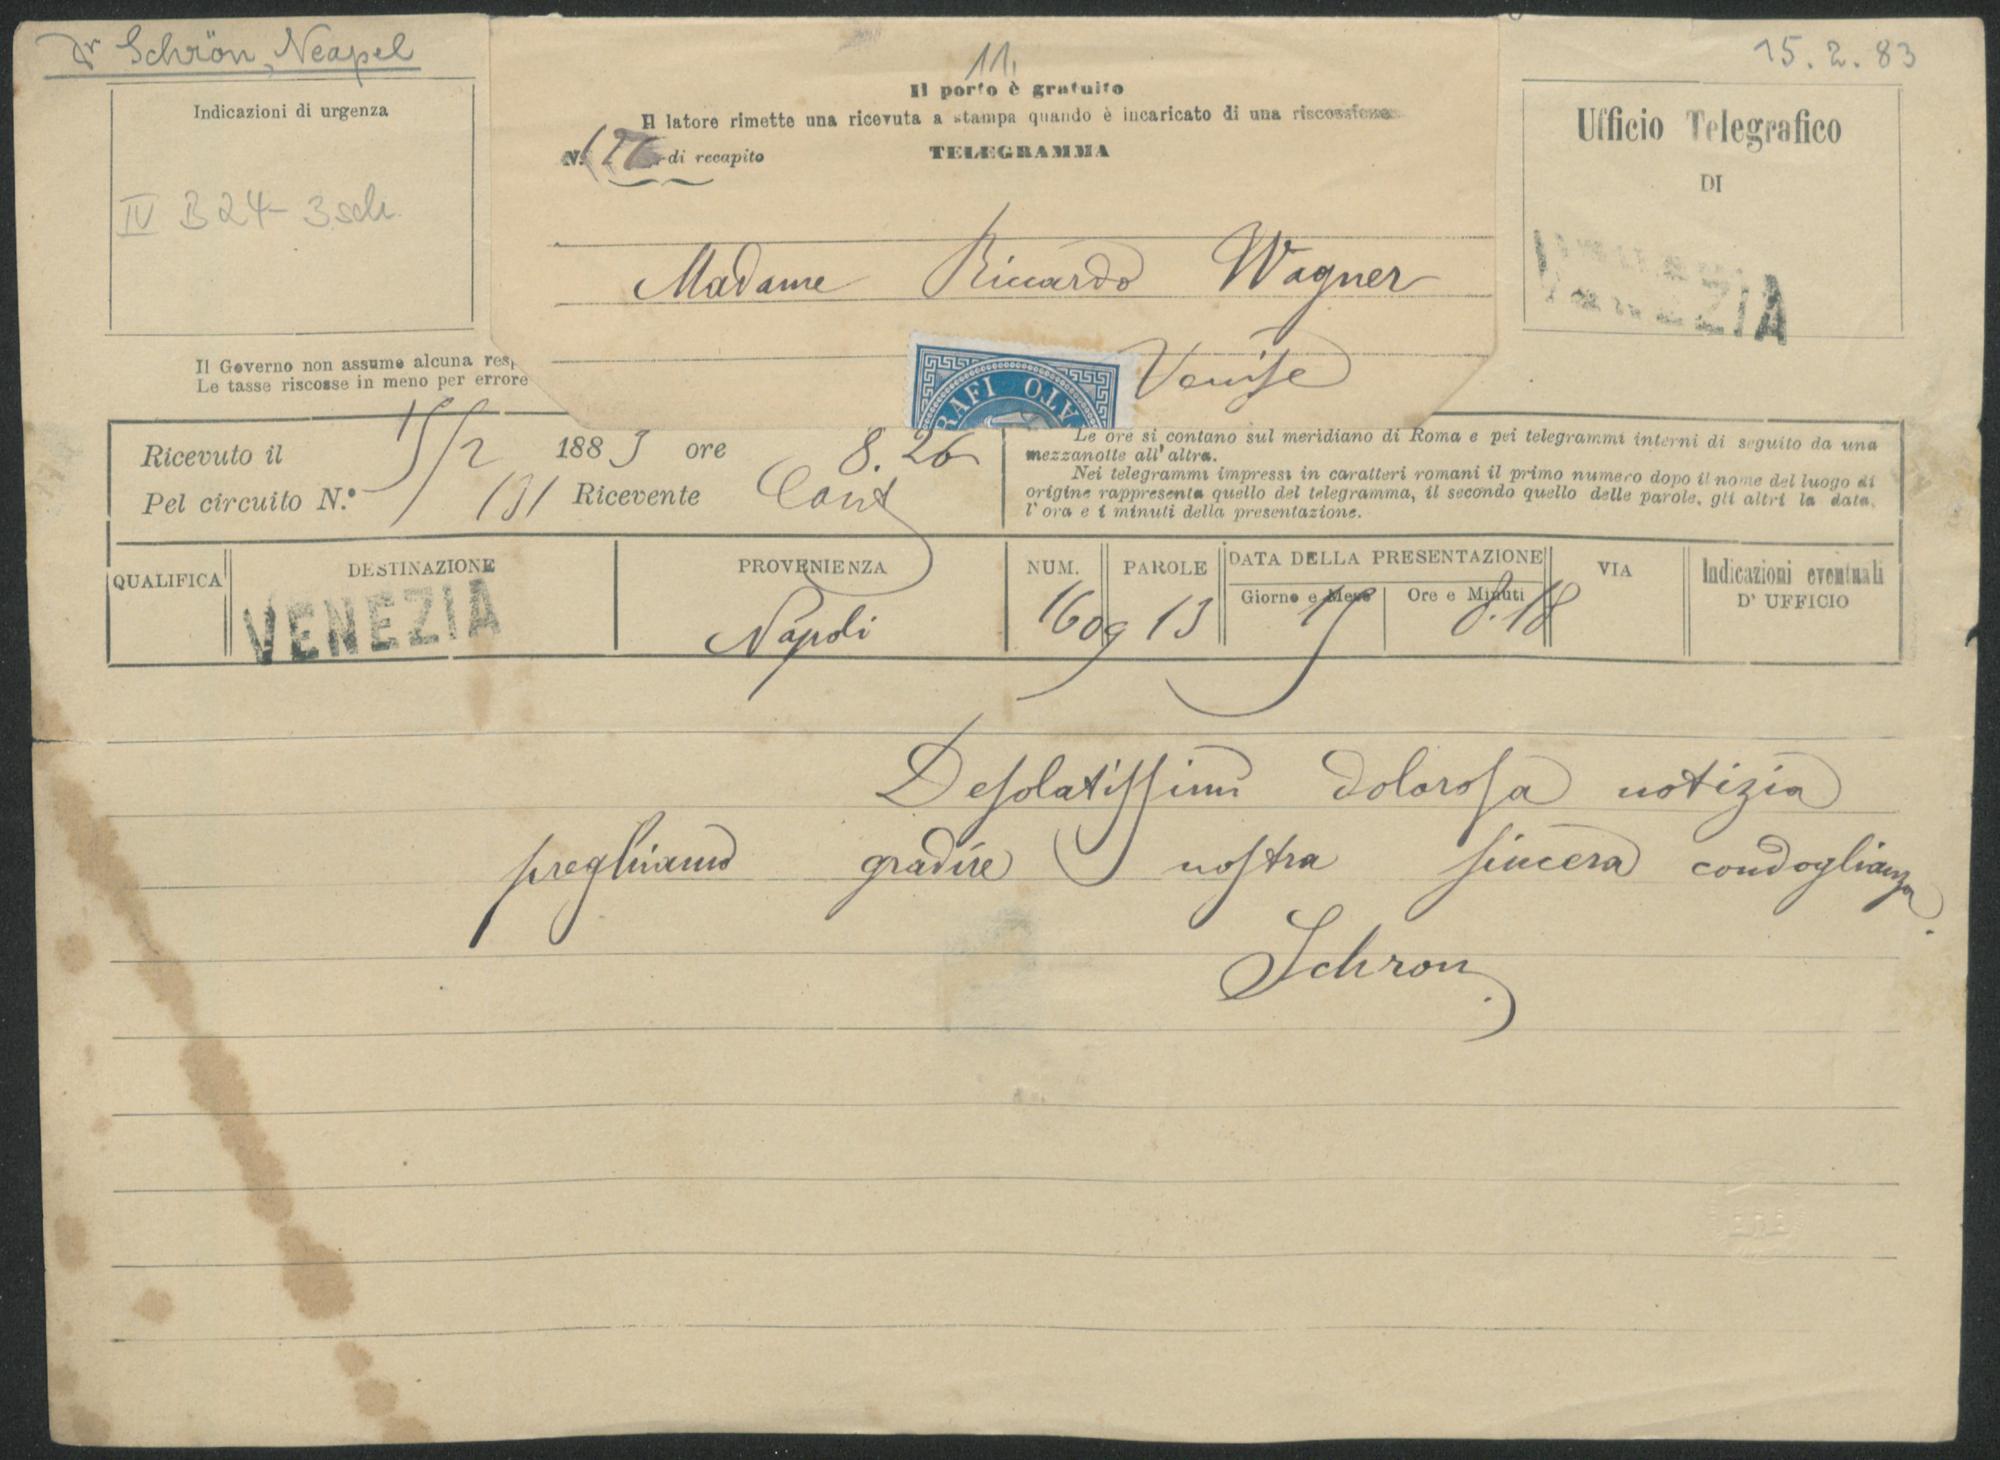 Dr Schrön, Neapel
15. 2. 83
11.
Indicazioni di urgenza
IV B 24-3 sch.
Il porto è gratuito
Il latore rimette una ricevuta a stampa quando è incaricato di una riscossione
N. di recapito
TELEGRAMMA
Madame Riccardo Wagner
Venise
RAFI ATO
Ufficio Telegrafico
DI
VENEZIA
Il Governo non assume alcuna resp
Le tasse riscosse in meno per errore
Ricevuto il 15/2 1883 ore 8.26
Pel circuito N.º 131 Ricevente
Le ore si contano sul meridiano di Roma e pei telegrammi interni di seguito da una
mezzanotte all'altra.
Nei telegrammi impressi in caratteri romani il primo numero dopo il nome del luogo di
origine rappresenta quello del telegramma, il secondo quello delle parole, gli altri la data,
l'ora e i minuti della presentazione.
QUALIFICA DESTINAZIONE PROVENIENZA NUM. PAROLE DATA DELLA PRESENTAZIONE VIA Indicazioni eventuali
D' UFFICIO
Giorno e Mese Ore e Minuti
VENEZIA Napoli 1609 13 15 8.18
Desolatissimi dolorosa notizia
preghiamo gradire nostra sincera condoglianza.
Schron.